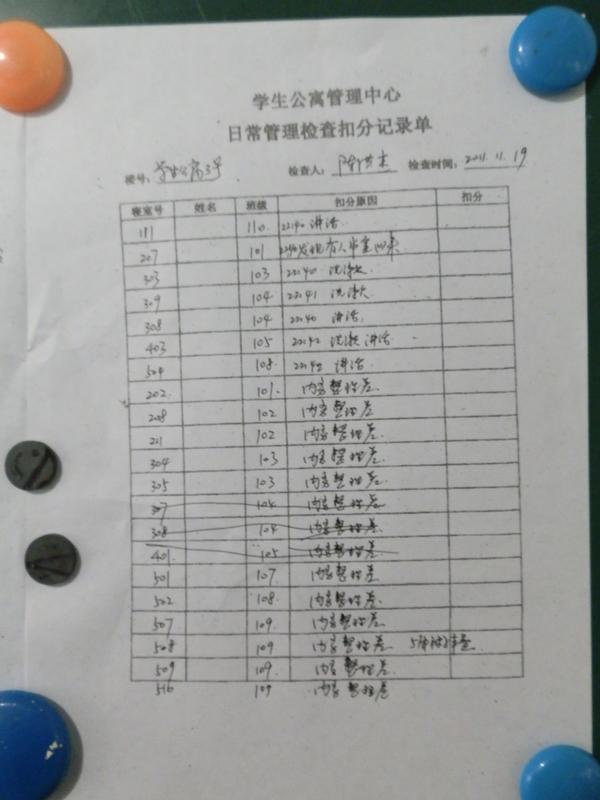 学生公寓管理中心
日常管理检查扣分记录单
楼号: 学生公寓3号 检查人: 检查时间: 2011.11.19
寝室号 姓名 班级 扣分原因 扣分
111 110. 22:40 讲话
207 101 22:40发现有人串室回来
303 103 22:40 洗漱
309 104 22:41 洗漱
308 104 22:40 讲话
403 105 22:42 洗漱 讲话
504 108 22:42 讲话
202 101. 内务整理差
208 102 内务整理差
211 102 内务整理差
304 103 内务整理差
305 103 内务整理差
307 104 内务整理差
308 104 内务整理差
401 105 内务整理差
501 107 内务整理差
502 108. 内务整理差
507 109. 内务整理差
508 109 内务整理差 5
509 109. 内务整理差
516 109 内务整理差